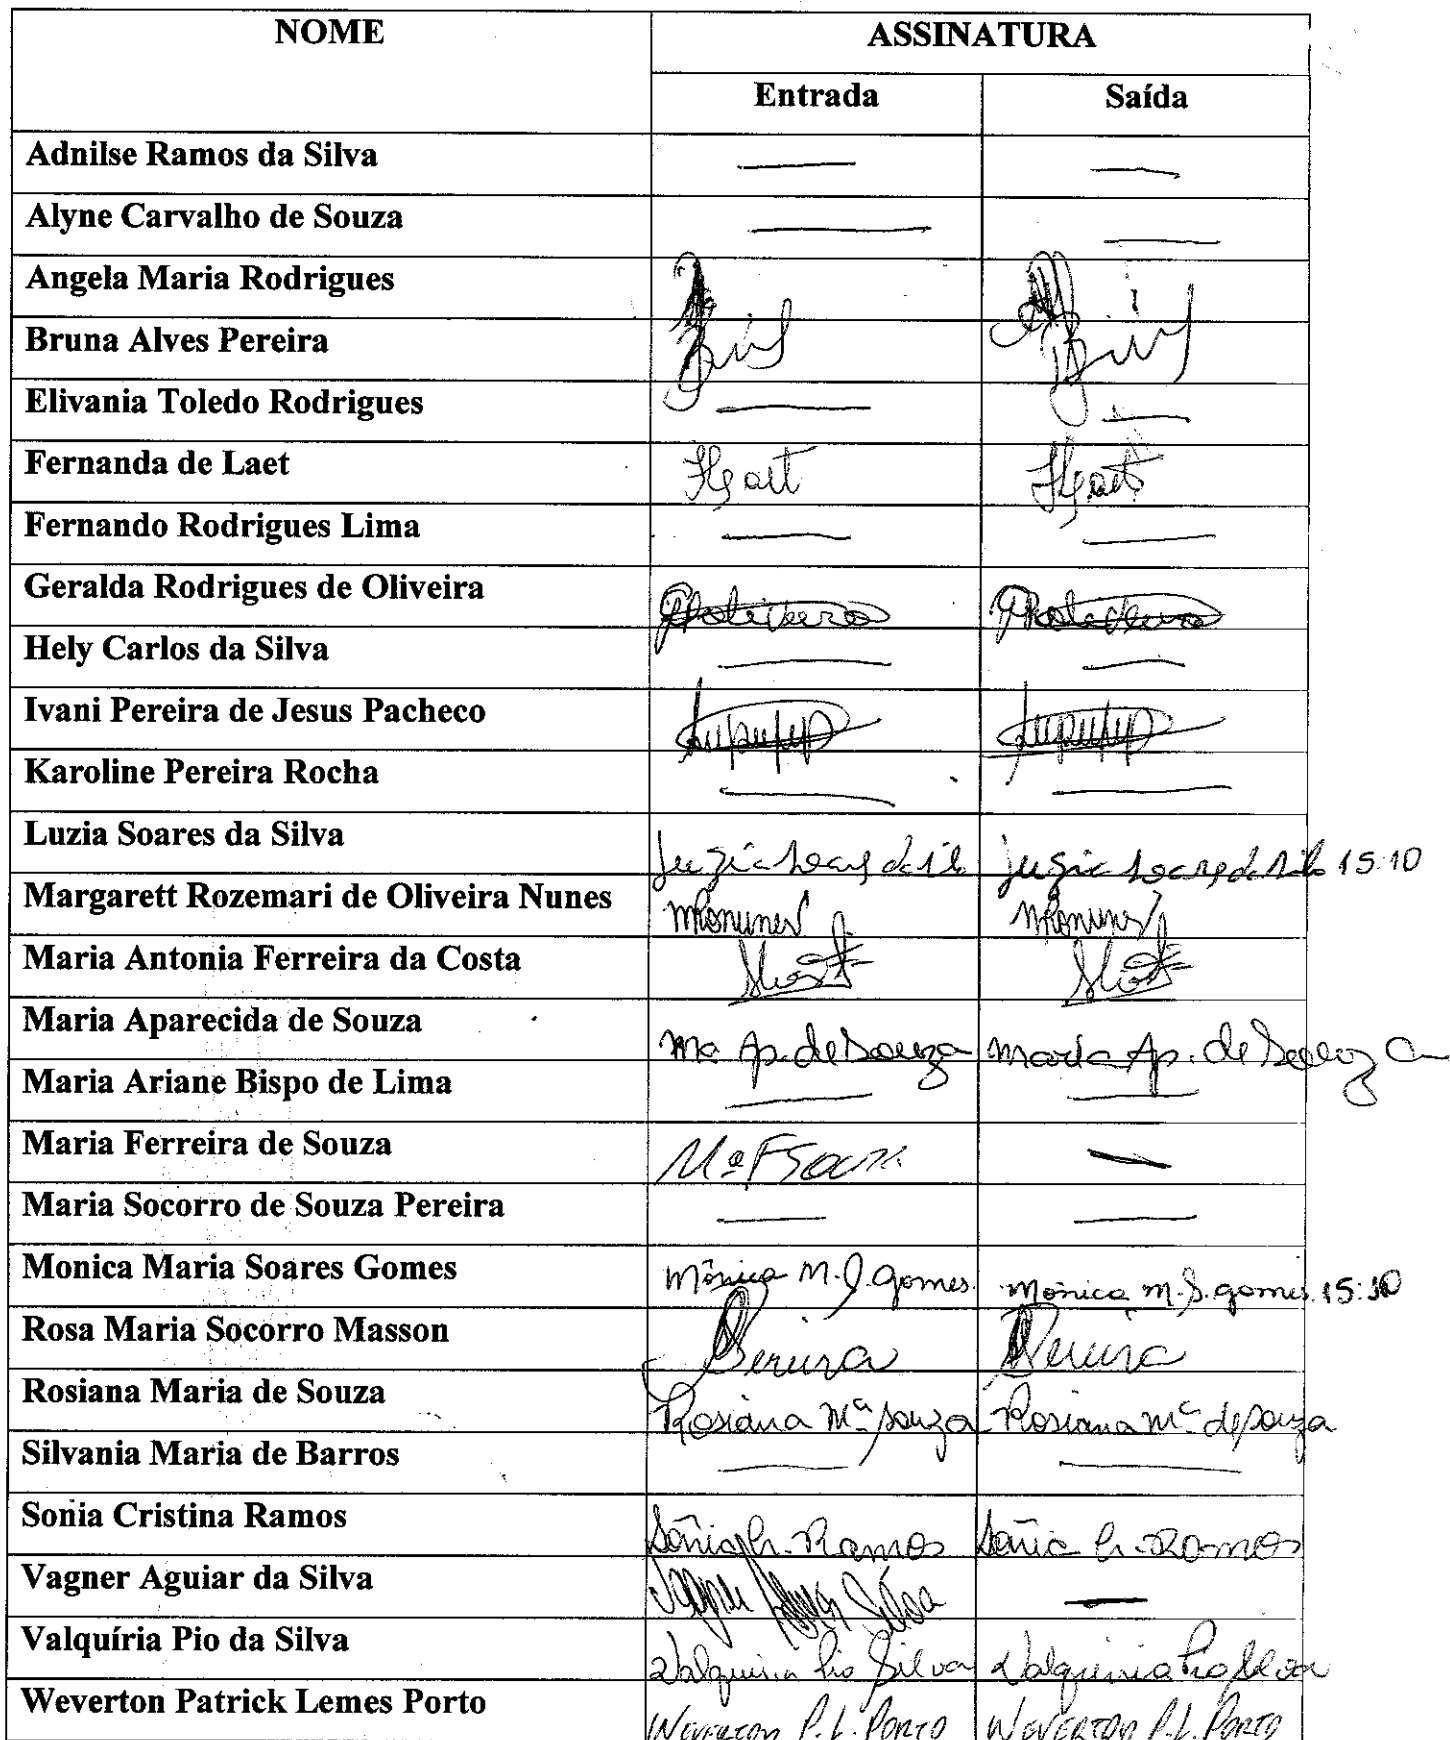 NOME ASSINATURA
Entrada Saída
Adnilse Ramos da Silva
Alyne Carvalho de Souza
Angela Maria Rodrigues
Bruna Alves Pereira
Elivania Toledo Rodrigues
Fernanda de Laet
Fernando Rodrigues Lima
Geralda Rodrigues de Oliveira
Hely Carlos da Silva
Ivani Pereira de Jesus Pacheco
Karoline Pereira Rocha
Luzia Soares da Silva 15:10
Margarett Rozemari de Oliveira Nunes
Maria Antonia Ferreira da Costa
Maria Aparecida de Souza Mª Ap. de Souza Maria Ap. de Souza
Maria Ariane Bispo de Lima
Maria Ferreira de Souza Mª F Souza
Maria Socorro de Souza Pereira
Monica Maria Soares Gomes Mônica M. S. gomes. Mônica M. S. gomes. 15:10
Rosa Maria Socorro Masson
Rosiana Maria de Souza Rosiana Mª Souza Rosiana Mª de Souza
Silvania Maria de Barros
Sonia Cristina Ramos Sônia Cr. Ramos Sônia Cr. Ramos
Vagner Aguiar da Silva
Valquíria Pio da Silva Valquiria Pio Silva Valquiria Pio Silva
Weverton Patrick Lemes Porto WEVERTON P. L. PORTO WEVERTON P. L. PORTO